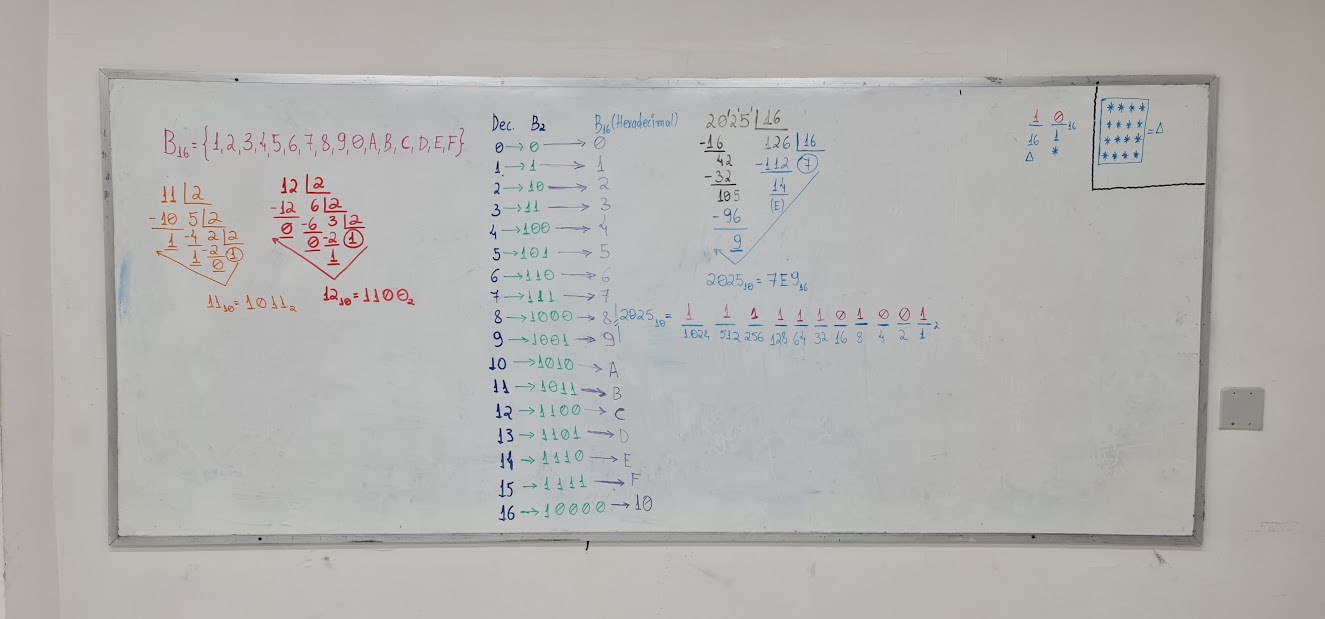 B₁₆ = {1,2,3,4,5,6,7,8,9,0,A,B,C,D,E,F}
11 |2
-10 5 |2
1 -4 2 |2
1 -2 1
0
11₁₀ = 1011₂
12 |2
-12 6 |2
0 -6 3 |2
0 -2 1
1
12₁₀ = 1100₂
Dec. B₂ B₁₆ (Hexadecimal)
0 → 0 → 0
1 → 1 → 1
2 → 10 → 2
3 → 11 → 3
4 → 100 → 4
5 → 101 → 5
6 → 110 → 6
7 → 111 → 7
8 → 1000 → 8
9 → 1001 → 9
10 → 1010 → A
11 → 1011 → B
12 → 1100 → C
13 → 1101 → D
14 → 1110 → E
15 → 1111 → F
16 → 10000 → 10
20'2'5' |16
-16 126 |16
42 -112 7
-32 14
105 (E)
-96
9
2025₁₀ = 7E9₁₆
2025₁₀ = 1 1 1 1 1 1 0 1 0 0 1 ₂
1024 512 256 128 64 32 16 8 4 2 1
1 0 ₁₆
16 1
Δ *
* * * *
* * * *
* * * *
* * * *
= Δ